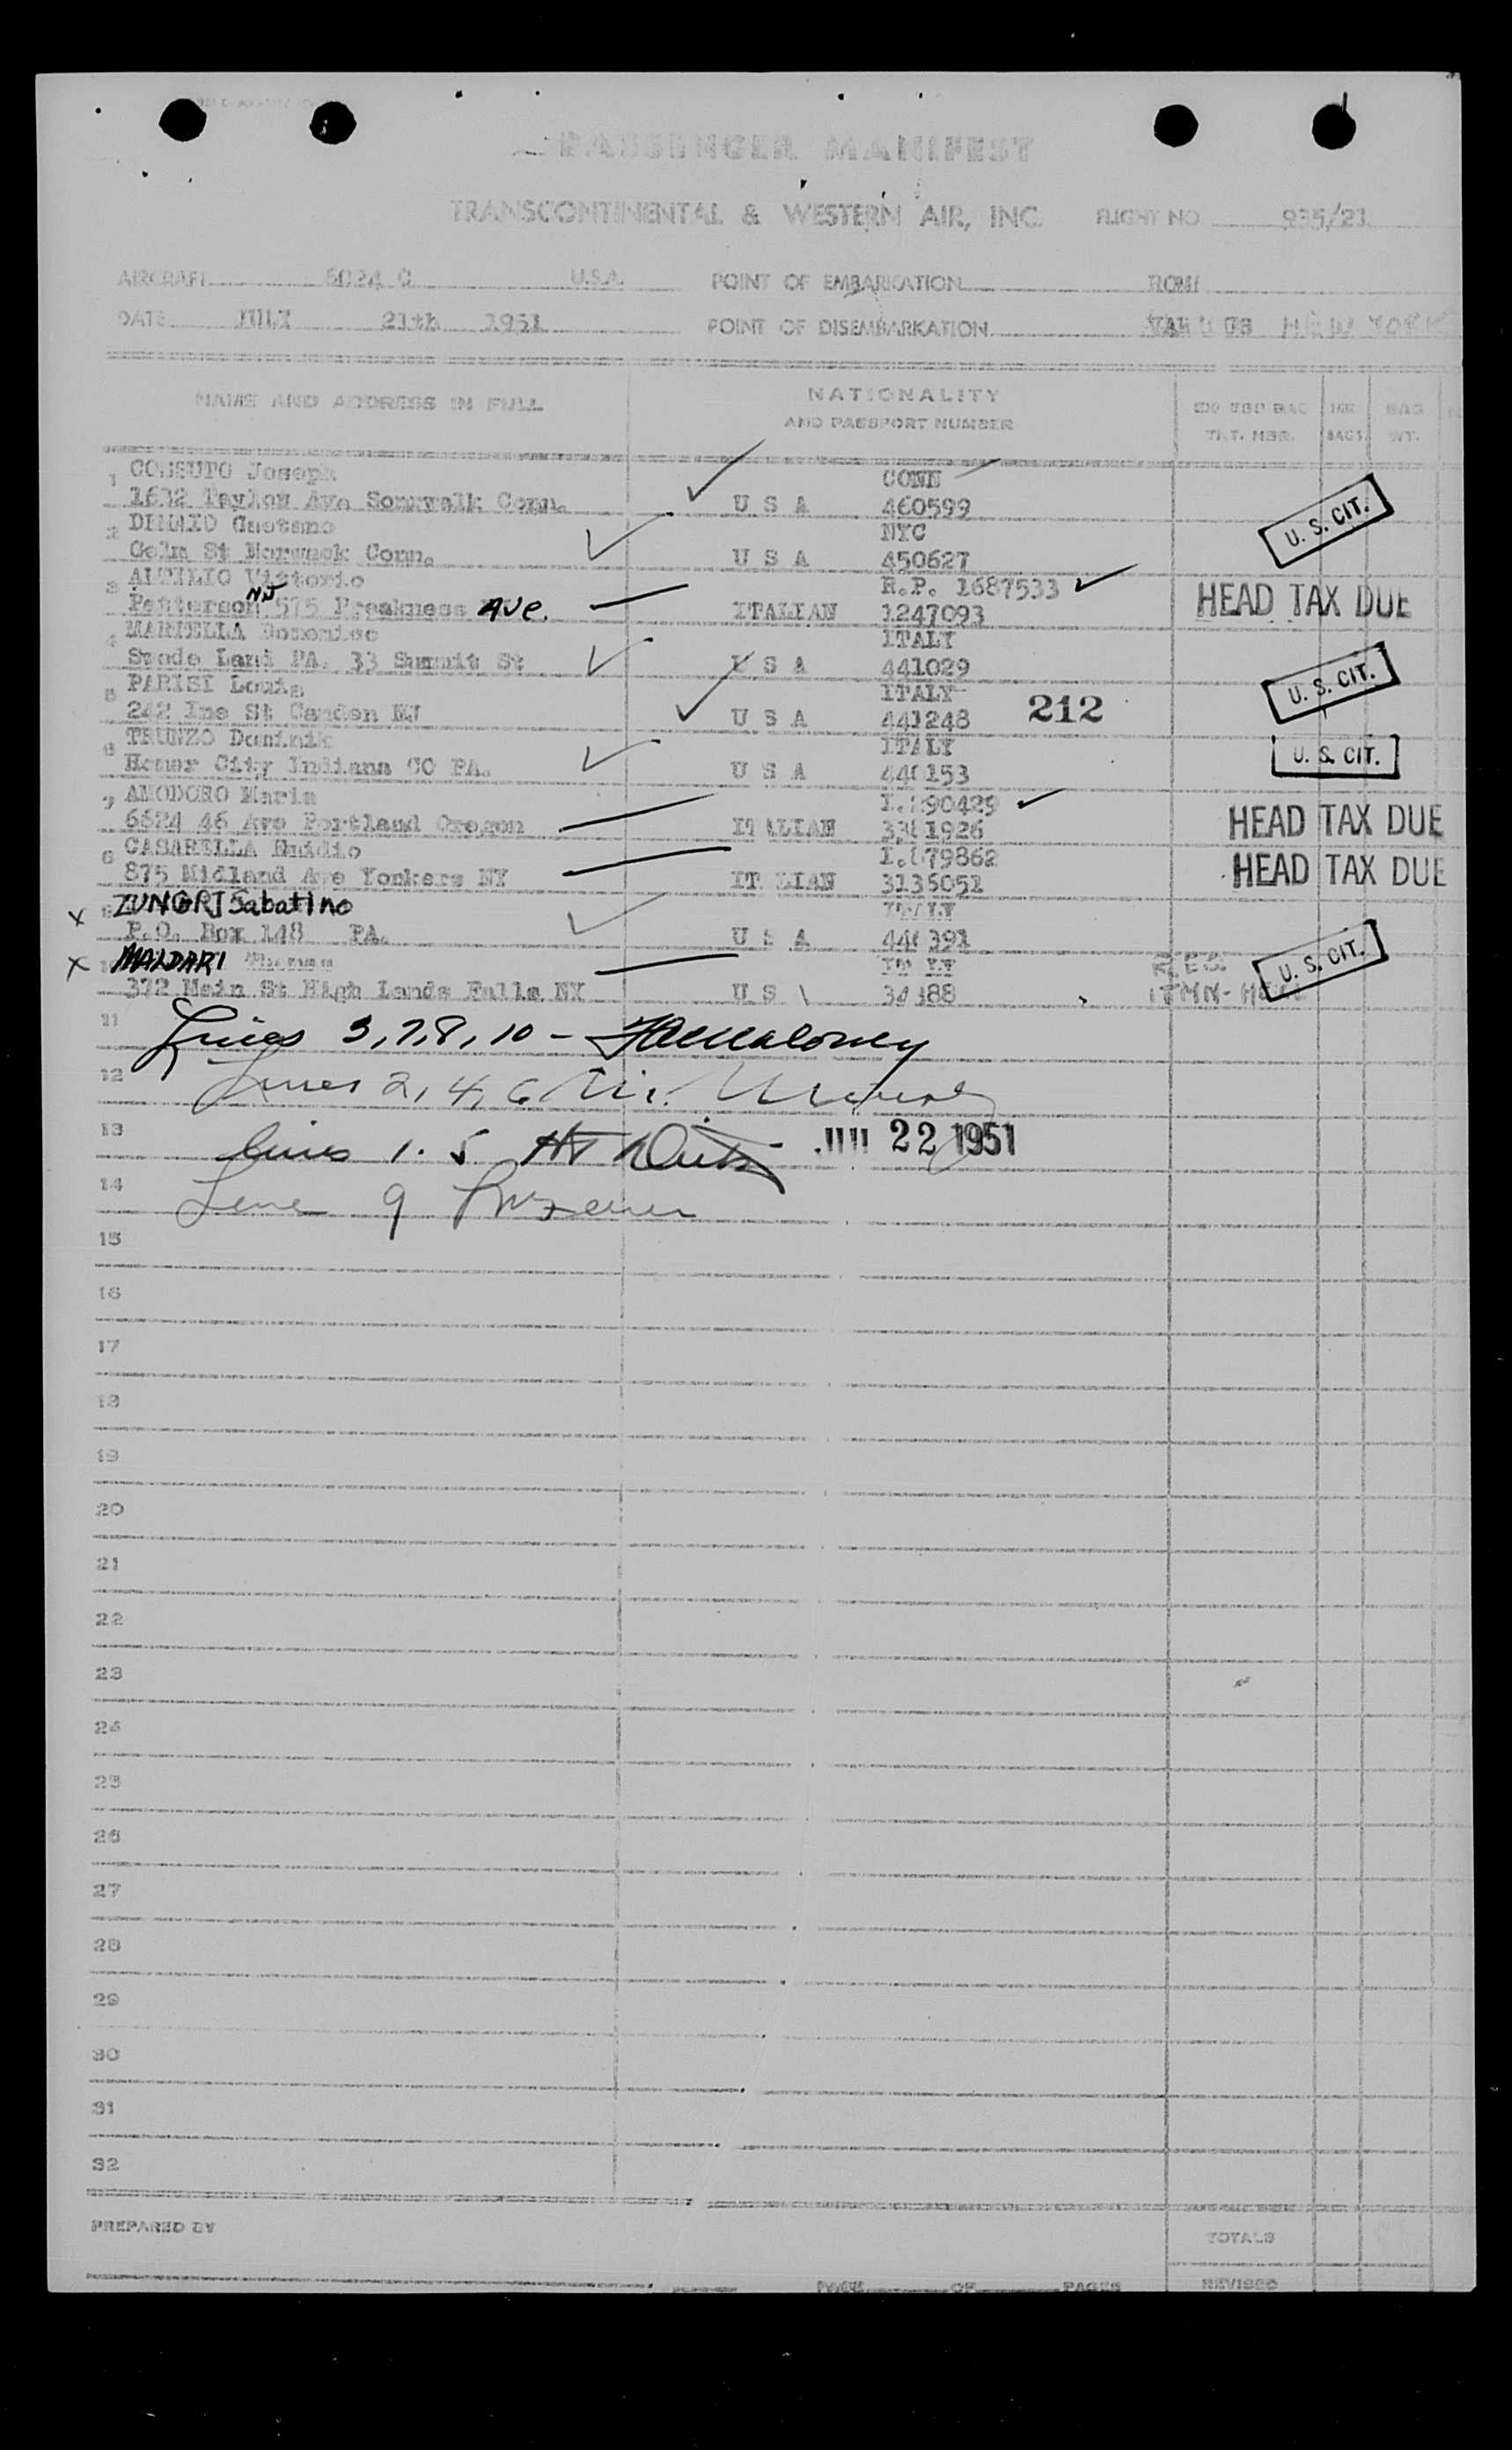 PASSENGER MANIFEST
TRANSCONTINENTAL & WESTERN AIR, INC. FLIGHT NO 935/21
AIRCRAFT 6024 C U.S.A. POINT OF EMBARKATION ROME
DATE JULY 21th 1951 POINT OF DISEMBARKATION NEW YORK
NAME AND ADDRESS IN FULL NATIONALITY
AND PASSPORT NUMBER
TKT. NBR. BAGS WT.
1 Joseph CONN
1632 Taylor Ave Conn. U S A 460599
2 Gaetano NYC U. S. CIT.
St Conn. U S A 450627
3 ALTIMIO Vittorio R.P. 1687533
Patterson NJ 575 Preakness Ave. ITALIAN 1247093 HEAD TAX DUE
4 MARTELLA Domenico ITALY
Swede Land PA. 33 Summit St U S A 441029
5 PARISI Louis ITALY U. S. CIT.
242 St Camden NJ U S A 441248 212
6 TRUNZO Dominik ITALY U. S. CIT.
Homer City Indiana CO PA. U S A 44 153
7 AMODORO Maria I. 90429
6624 46 Ave Portland Oregon ITALIAN 1926 HEAD TAX DUE
8 CASARELLA Emidio I. 79862
875 Midland Ave Yonkers NY IT LIAN 3135051 HEAD TAX DUE
x 9 ZUNGRI Sabatino ITALY
P.O. Box 148 PA. U S A 44 391
x 10 MALDARI U. S. CIT.
372 Main St High Lands Falls NY U S 88
11 Lines 3, 7, 8, 10 -
12 Lines 2, 4, 6
13 lines 1. 5 22 1951
14 Line 9
15
16
17
18
19
20
21
22
23
24
25
26
27
28
29
30
31
32
PREPARED BY TOTALS
PAGE OF PAGES REVISED